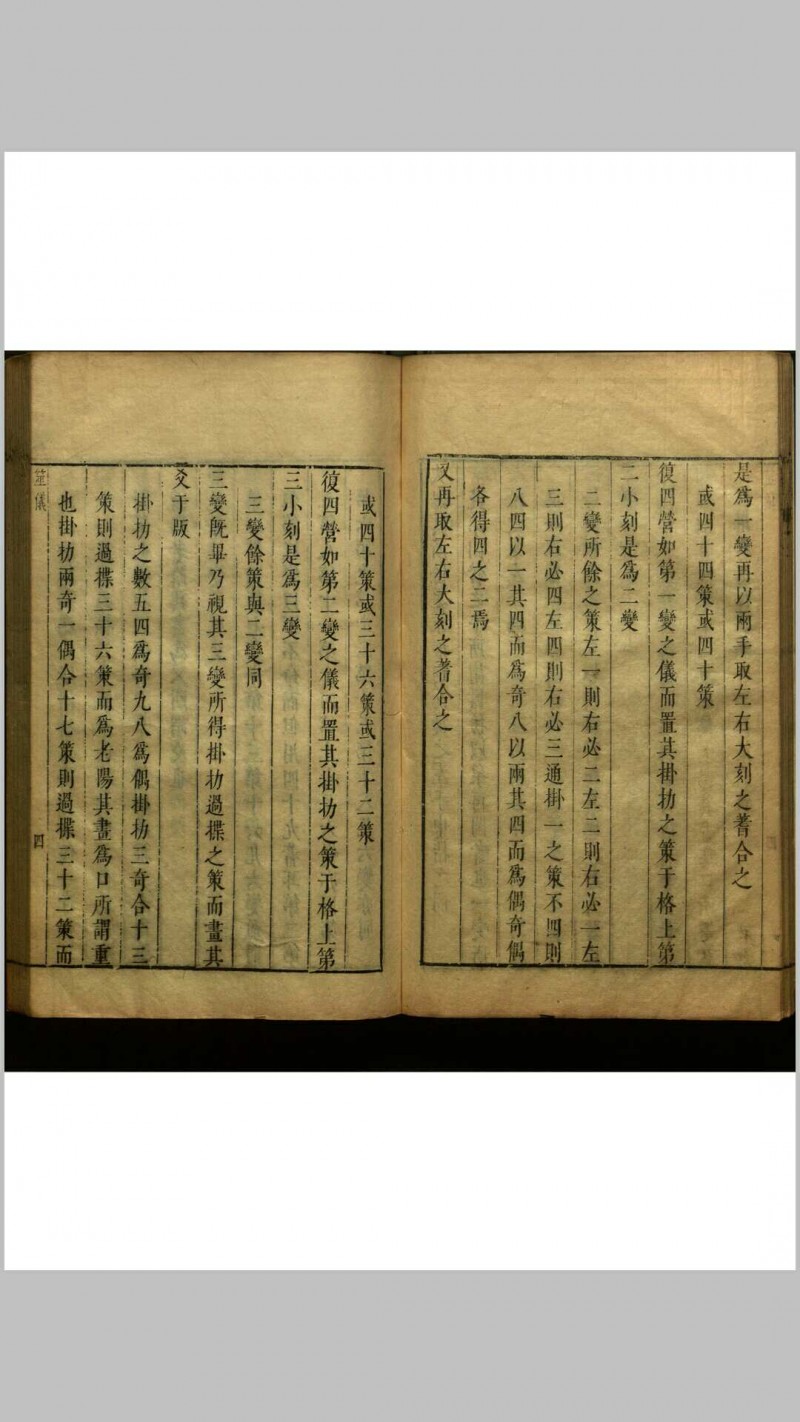 是爲一變再以兩手取左右大刻之蓍合之
或四十四策或四十策
復四營如第一變之儀而置其掛扐之策于格上第
二小刻是爲二變
二變所餘之策左一則右必二左二則右必一左
三則右必四左四則右必三通掛一之策不四則
八四以一其四而爲奇八以兩其四而爲偶奇偶
各得四之二焉
又再取左右大刻之蓍合之
或四十策或三十六策或三十二策
復四營如第二變之儀而置其掛扐之策于格上第
三小刻是爲三變
三變餘策與二變同
三變旣畢乃視其三變所得掛扐過揲之策而畫其
爻于版
掛扐之數五四爲奇九八爲偶掛扐三奇合十三
策則過揲三十六策而爲老陽其畫爲口所謂重
也掛扐兩奇一偶合十七策則過揲三十二策而
筮儀
四